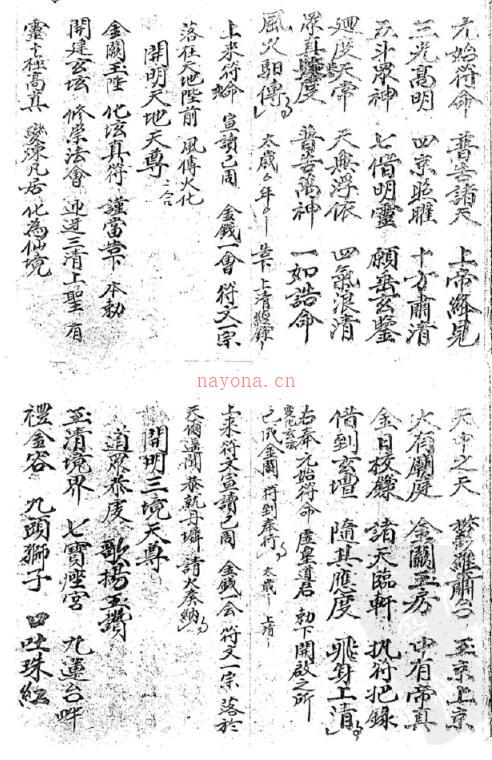 元始符命　普告諸天　上帝降見
三光高明　四京照曜　十方肅清
五斗眾神　七借明靈　願垂玄鑒
迴度天帝　天興浮依　四氣浪清
眾真監度　普告萬神　一如誥命
風火馹傳　太歲　年　告下上清
上来符命　宣讀已周　金錢一會　符文一宗
落在天地陛前　風傳火化
開明天地天尊
金闕玉陛　化坛真符　謹當告下　本勅
開建玄坛　修崇法會　迎迓三清上聖　有
靈七極高真　變煉凡居　化為仙境
nayona.cn
天中之天　欝羅蕭台　玉京上京
大有廟庭　金闕玉房　中有帝真
金日校錄　諸天臨軒　执符把籙
借到玄壇　隨其應度　飛身上清
右奉元始符命　虛皇道君　勅下開啟之所
金闕　符到奉行　太歲　上清
上来符文宣讀已周　金錢一会　符文一宗　落於
天　請火奏納
開明三境天尊
道眾恭虔　歌揚玉讚
玉清境界　七寶　宮　九蓮台畔
禮金容　九頭獅子　口吐珠紅